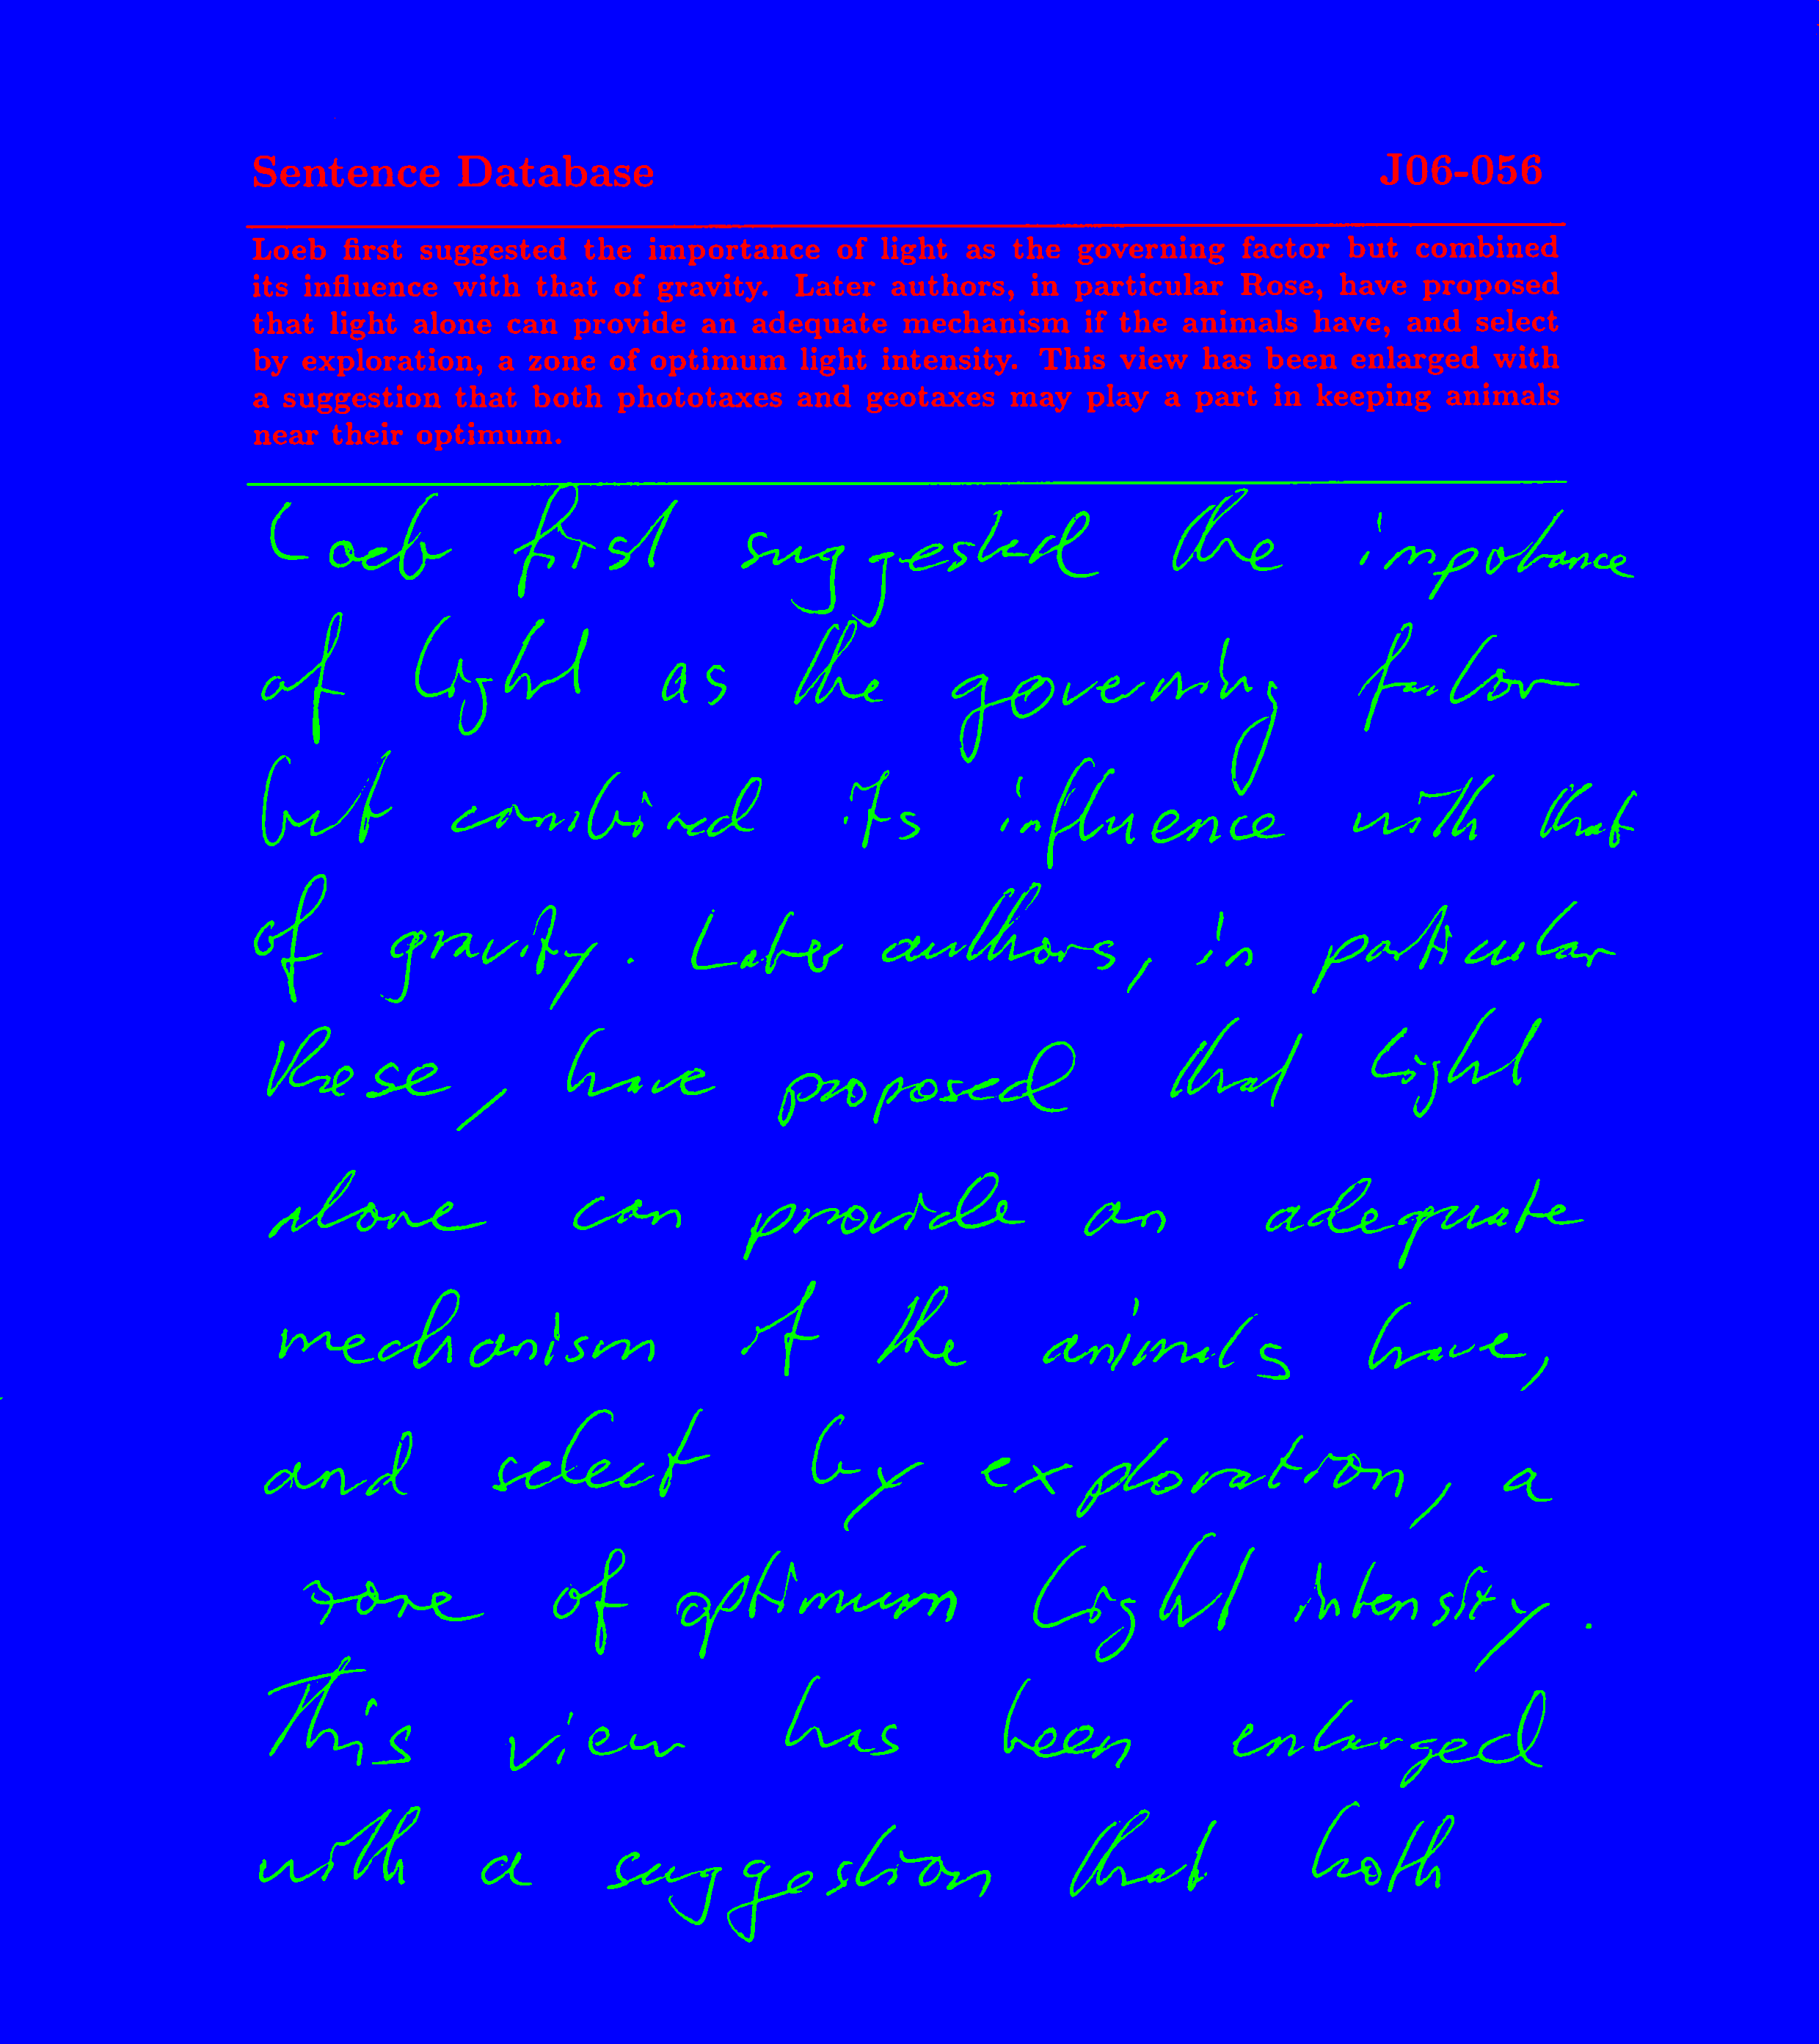 Sentence Database J06-056
Loeb first suggested the importance of light as the governing factor but combined
its influence with that of gravity. Later authors, in particular Rose, have proposed
that light alone can provide an adequate mechanism if the animals have, and select
by exploration, a zone of optimum light intensity. This view has been enlarged with
a suggestion that both phototaxes and geotaxes may play a part in keeping animals
near their optimum.
Loeb first suggested the impotance
of light as the governing factor
but combined its influence with that
of gravity. Later authors, in particular
these, have proposed that light
alone can provide an adequate
mechanism if the animals have,
and select by exploration, a
zone of optimum light intensity.
This view has been enlarged
with a suggestion that both